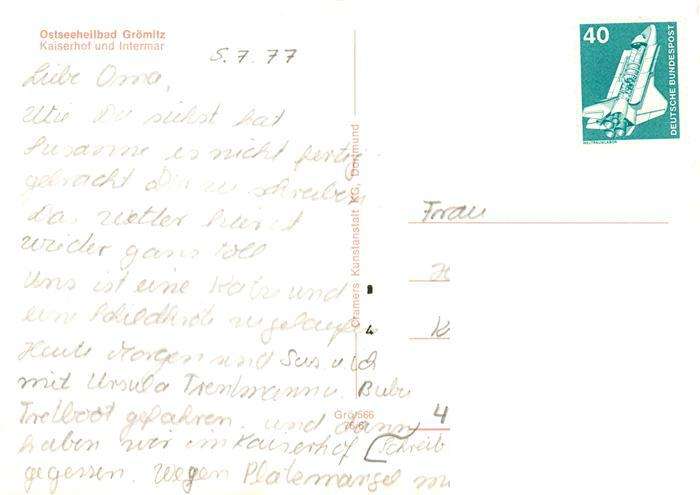 Ostseeheilbad Grömitz
Kaiserhof und Intermar
5.7.77
Liebe Oma,
Wie Du siehst hat
Susanne es nicht fertig
gebracht Dir zu schreiben
Das Wetter hier ist
wieder ganz toll
Uns ist eine Katze und
eine Schildkröte zugelaufen
Heute Morgen sind Sus u ich
mit Ursula Trentmann u. Bubi
Tretboot gefahren. und dann
haben wir im Kaiserhof (Schreib
gegessen. Wegen Platzmangel
Cramers Kunstanstalt KG, Dortmund
Grö/566
40
DEUTSCHE BUNDESPOST
WELTRAUMLABOR
Frau
H
K
4